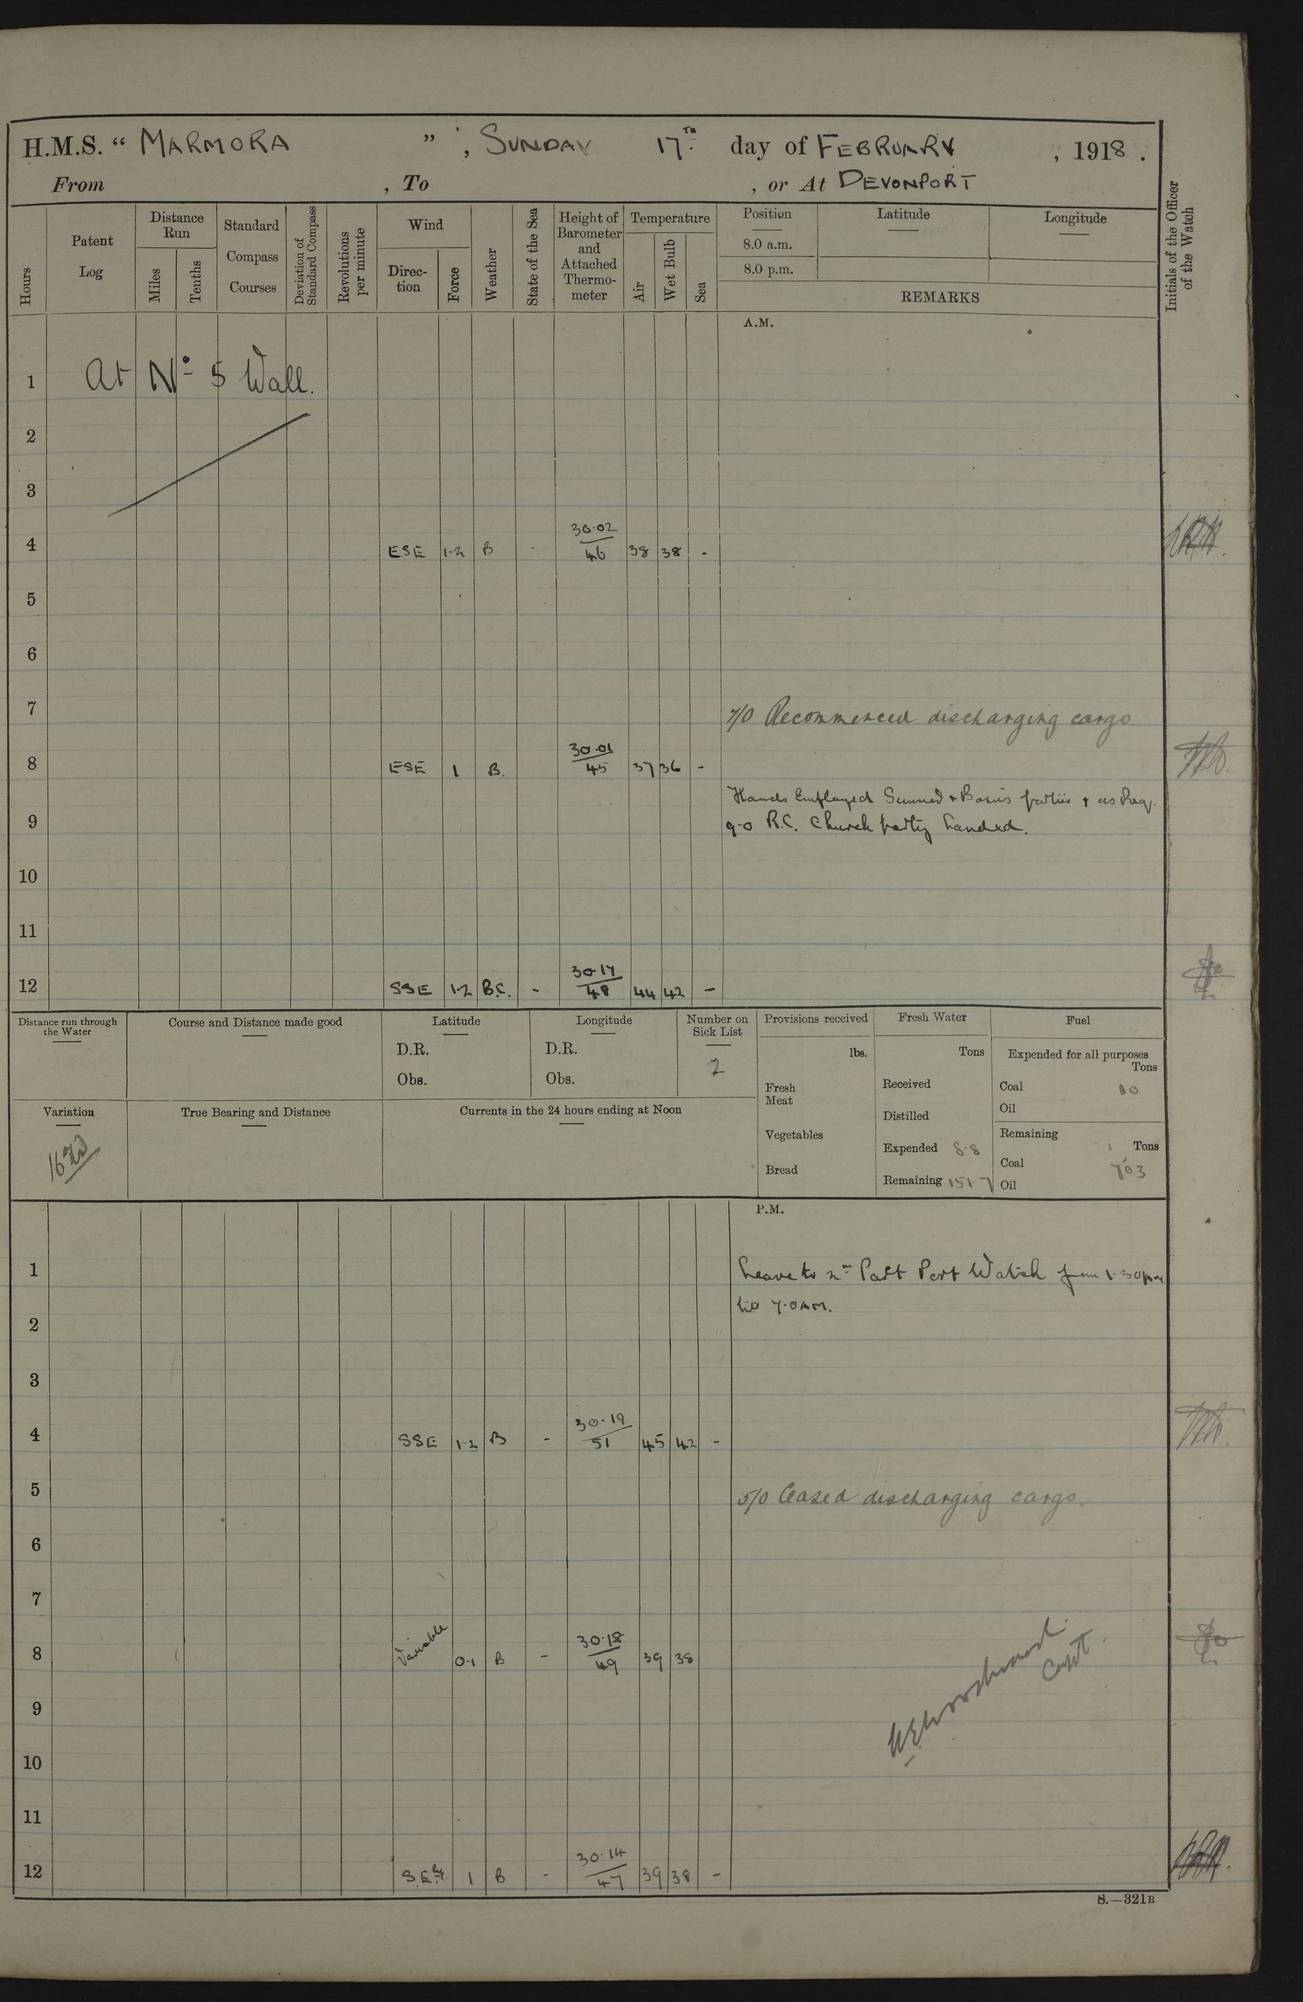 H.M.S. “ MARMORA ” , SUNDAY 17TH day of FEBRUARY , 1918 .
From , To , or At DEVONPORT
Hours
Patent Log
Distance Run
Miles
Tenths
Standard Compass Courses
Deviation of Standard Compass
Revolutions per minute
Wind
Direc-tion
Force
Weather
State of the Sea
Height of Barometer and Attached Thermo-meter
Temperature
Air
Wet Bulb
Sea
Position
Latitude
Longitude
8.0 a.m.
8.0 p.m.
REMARKS
Initials of the Officer of the Watch
A.M.
1 At No 5 Wall.
2
3
4 ESE 1-2 B - 30.02 46 38 38 -
5
6
7 7/0 Recommenced discharging cargo.
8 ESE 1 B. 30.01 45 37 36 -
Hands Employed Gunner's & Bosun's parties & as Req.
9 9-0 R.C. Church party landed.
10
11
12 SSE 1-2 B.C. - 30.17 48 44 42 -
Distance run through the Water
Course and Distance made good
Latitude
D.R.
Obs.
Longitude
D.R.
Obs.
Number on Sick List
2
Provisions received
lbs.
Fresh Meat
Vegetables
Bread
Fresh Water
Tons
Received
Distilled
Expended 8.8
Remaining 151.7
Fuel
Expended for all purposes
Tons
Coal 10
Oil
Remaining
Tons
Coal 703
Oil
Variation
True Bearing and Distance
Currents in the 24 hours ending at Noon
P.M.
1 Leave to 2nd Part Port Watch from 1-30pm
till 7.0 AM.
2
3
4 SSE 1-2 B - 30.19 51 45 42 -
5 5/0 Ceased discharging cargo.
6
7
8 Variable 0-1 B - 30.18 49 39 38
9
10
11
12 S.E.ly 1 B - 30.14 47 39 38 -
Woodward
Capt
S.—321B